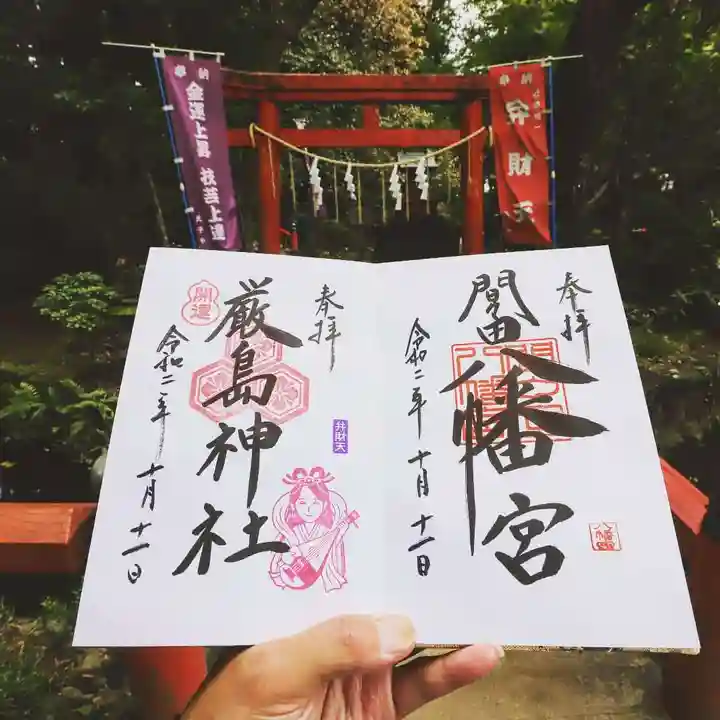 奉納
金運上昇 技芸上達
奉納
弁財天
奉拝
間々田
八幡宮
令和二年 十月 十一日
八幡宮
奉拝
開運
厳島神社
弁財天
令和二年 十月 十一日